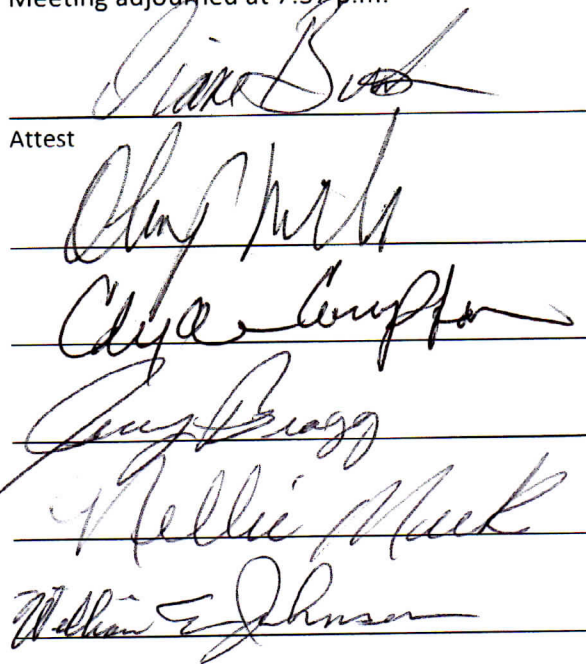 Meeting adjourned at 7:37 p.m.
Diane
Attest
Clyde Compton
Jerry Bragg
Nellie Mack
William E Johnson